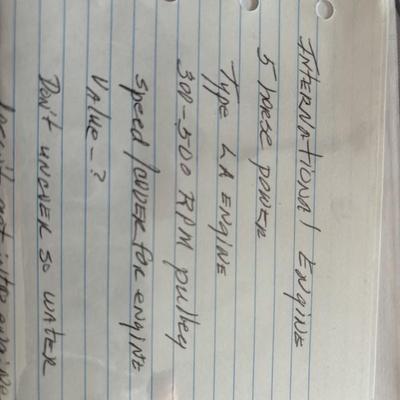 INTERNATIONAL ENGINE
5 horse power
Type LA ENGINE
300-500 RPM pulley
speed / for engine
Value-?
Don't uncver so water
get into engine